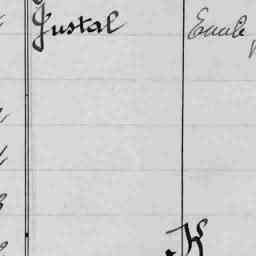 Justal Emile
K